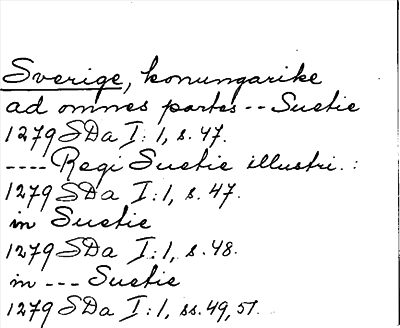 Sverige, konungarike
ad omnes partes -- Suetie
1279 SDa I:1, s. 47.
---- Regi Suetie illustri.:
1279 SDa I:1, s. 47.
in Suetie
1279 SDa I:1, s. 48.
in --- Suetie
1279 SDa I:1, ss. 49, 51.